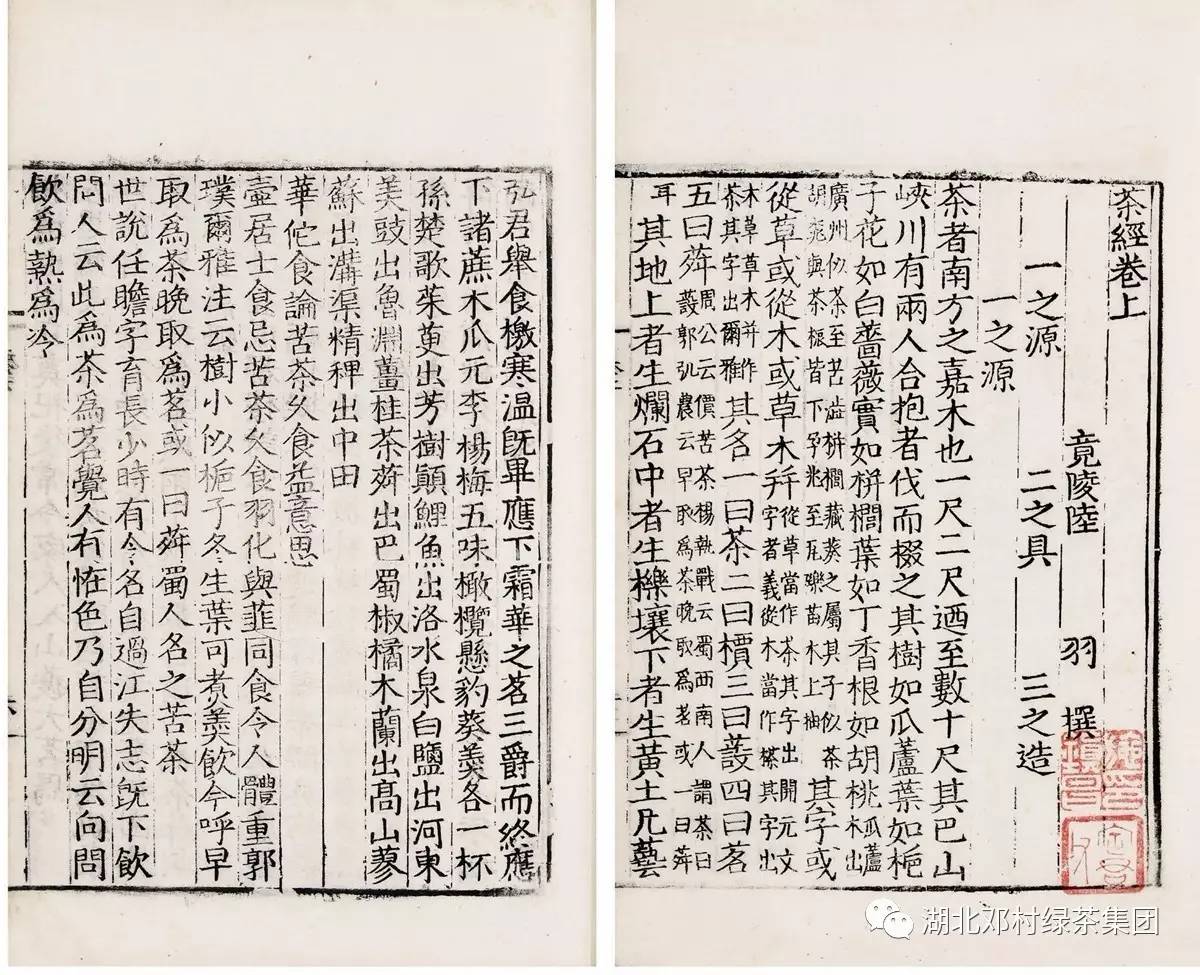 茶經卷上
竟陵陸 羽 撰
一之源 二之具 三之造
一之源
茶者南方之嘉木也一尺二尺迺至數十尺其巴山
峽川有兩人合抱者伐而掇之其樹如瓜蘆葉如梔
子花如白薔薇實如栟櫚葉如丁香根如胡桃瓜蘆木出
廣州似茶至苦澁栟櫚蒲葵之屬其子似茶
胡桃與茶根皆下孕兆至瓦礫苗木上抽其字或
從草或從木或草木并從草當作茶其字出開元文字者義從木當作㮈其字出
本草草木并作
茶其字出爾雅其名一曰茶二曰檟三曰蔎四曰茗
五曰荈周公云檟苦茶楊執戟云蜀西南人謂茶曰
蔎郭弘農云早取爲茶晚取爲茗或一曰荈
耳其地上者生爛石中者生櫟壤下者生黃土凡藝
弘君舉食檄寒温旣畢應下霜華之茗三爵而終應
下諸蔗木瓜元李楊梅五味橄欖懸豹葵羹各一杯
孫楚歌茱萸出芳樹顛鯉魚出洛水泉白鹽出河東
美豉出魯淵薑桂茶荈出巴蜀椒橘木蘭出高山蓼
蘇出溝渠精稗出中田
華佗食論苦茶久食益意思
壷居士食忌苦茶久食羽化與韮同食令人體重郭
璞爾雅注云樹小似梔子冬生葉可煑羮飲今呼早
取爲茶晚取爲茗或一曰荈蜀人名之苦茶
世說任瞻字育長少時有令名自過江失志旣下飲
問人云此爲茶爲茗覺人有恠色乃自分明云向問
飲爲熱爲冷
湖北邓村绿茶集团